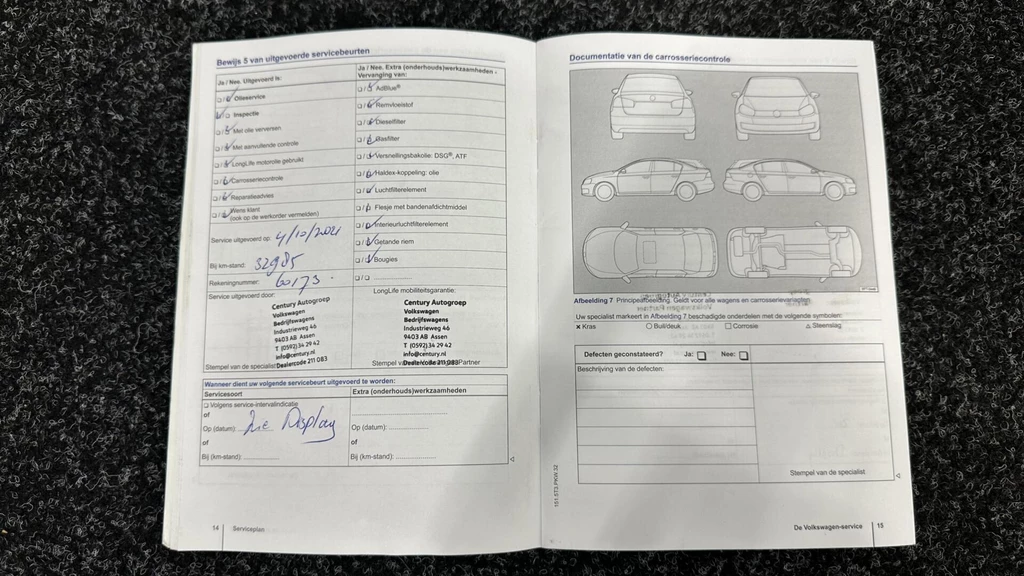 Bewijs 5 van uitgevoerde servicebeurten
Ja / Nee. Uitgevoerd is:
❑ / ❑ Olieservice
❑ / ❑ Inspectie
❑ / ❑ Met olie verversen
❑ / ❑ Met aanvullende controle
❑ / ❑ LongLife motorolie gebruikt
❑ / ❑ Carrosseriecontrole
❑ / ❑ Reparatieadvies
❑ / ❑ Wens klant
(ook op de werkorder vermelden)
Service uitgevoerd op: 4/10/2021
Bij km-stand: 32985
Rekeningnummer: 60173
Service uitgevoerd door:
Century Autogroep
Volkswagen
Bedrijfswagens
Industrieweg 46
9403 AB Assen
T (0592) 34 29 42
info@century.nl
Dealercode 211 083
Stempel van de specialist
Ja / Nee. Extra (onderhouds)werkzaamheden -
Vervanging van:
❑ / ❑ AdBlue®
❑ / ❑ Remvloeistof
❑ / ❑ Dieselfilter
❑ / ❑ Gasfilter
❑ / ❑ Versnellingsbakolie: DSG®, ATF
❑ / ❑ Haldex-koppeling: olie
❑ / ❑ Luchtfilterelement
❑ / ❑ Flesje met bandenafdichtmiddel
❑ / ❑ Interieurluchtfilterelement
❑ / ❑ Getande riem
❑ / ❑ Bougies
❑ / ❑ ....................
LongLife mobiliteitsgarantie:
Century Autogroep
Volkswagen
Bedrijfswagens
Industrieweg 46
9403 AB Assen
T (0592) 34 29 42
info@century.nl
Dealercode 211 083
Stempel Partner
Wanneer dient uw volgende servicebeurt uitgevoerd te worden:
Servicesoort
❑ Volgens service-intervalindicatie
of
Op (datum): Zie Display
of
Bij (km-stand): ............
Extra (onderhouds)werkzaamheden
Op (datum): ............
of
Bij (km-stand): ............
14 Serviceplan
Documentatie van de carrosseriecontrole
Afbeelding 7 Principeafbeelding. Geldt voor alle wagens en carrosserievarianten.
Uw specialist markeert in Afbeelding 7 beschadigde onderdelen met de volgende symbolen:
✕ Kras ○ Buil/deuk ☐ Corrosie △ Steenslag
Defecten geconstateerd? Ja: ❑ Nee: ❑
Beschrijving van de defecten:
Stempel van de specialist
151.5T3.PKW.32
De Volkswagen-service 15